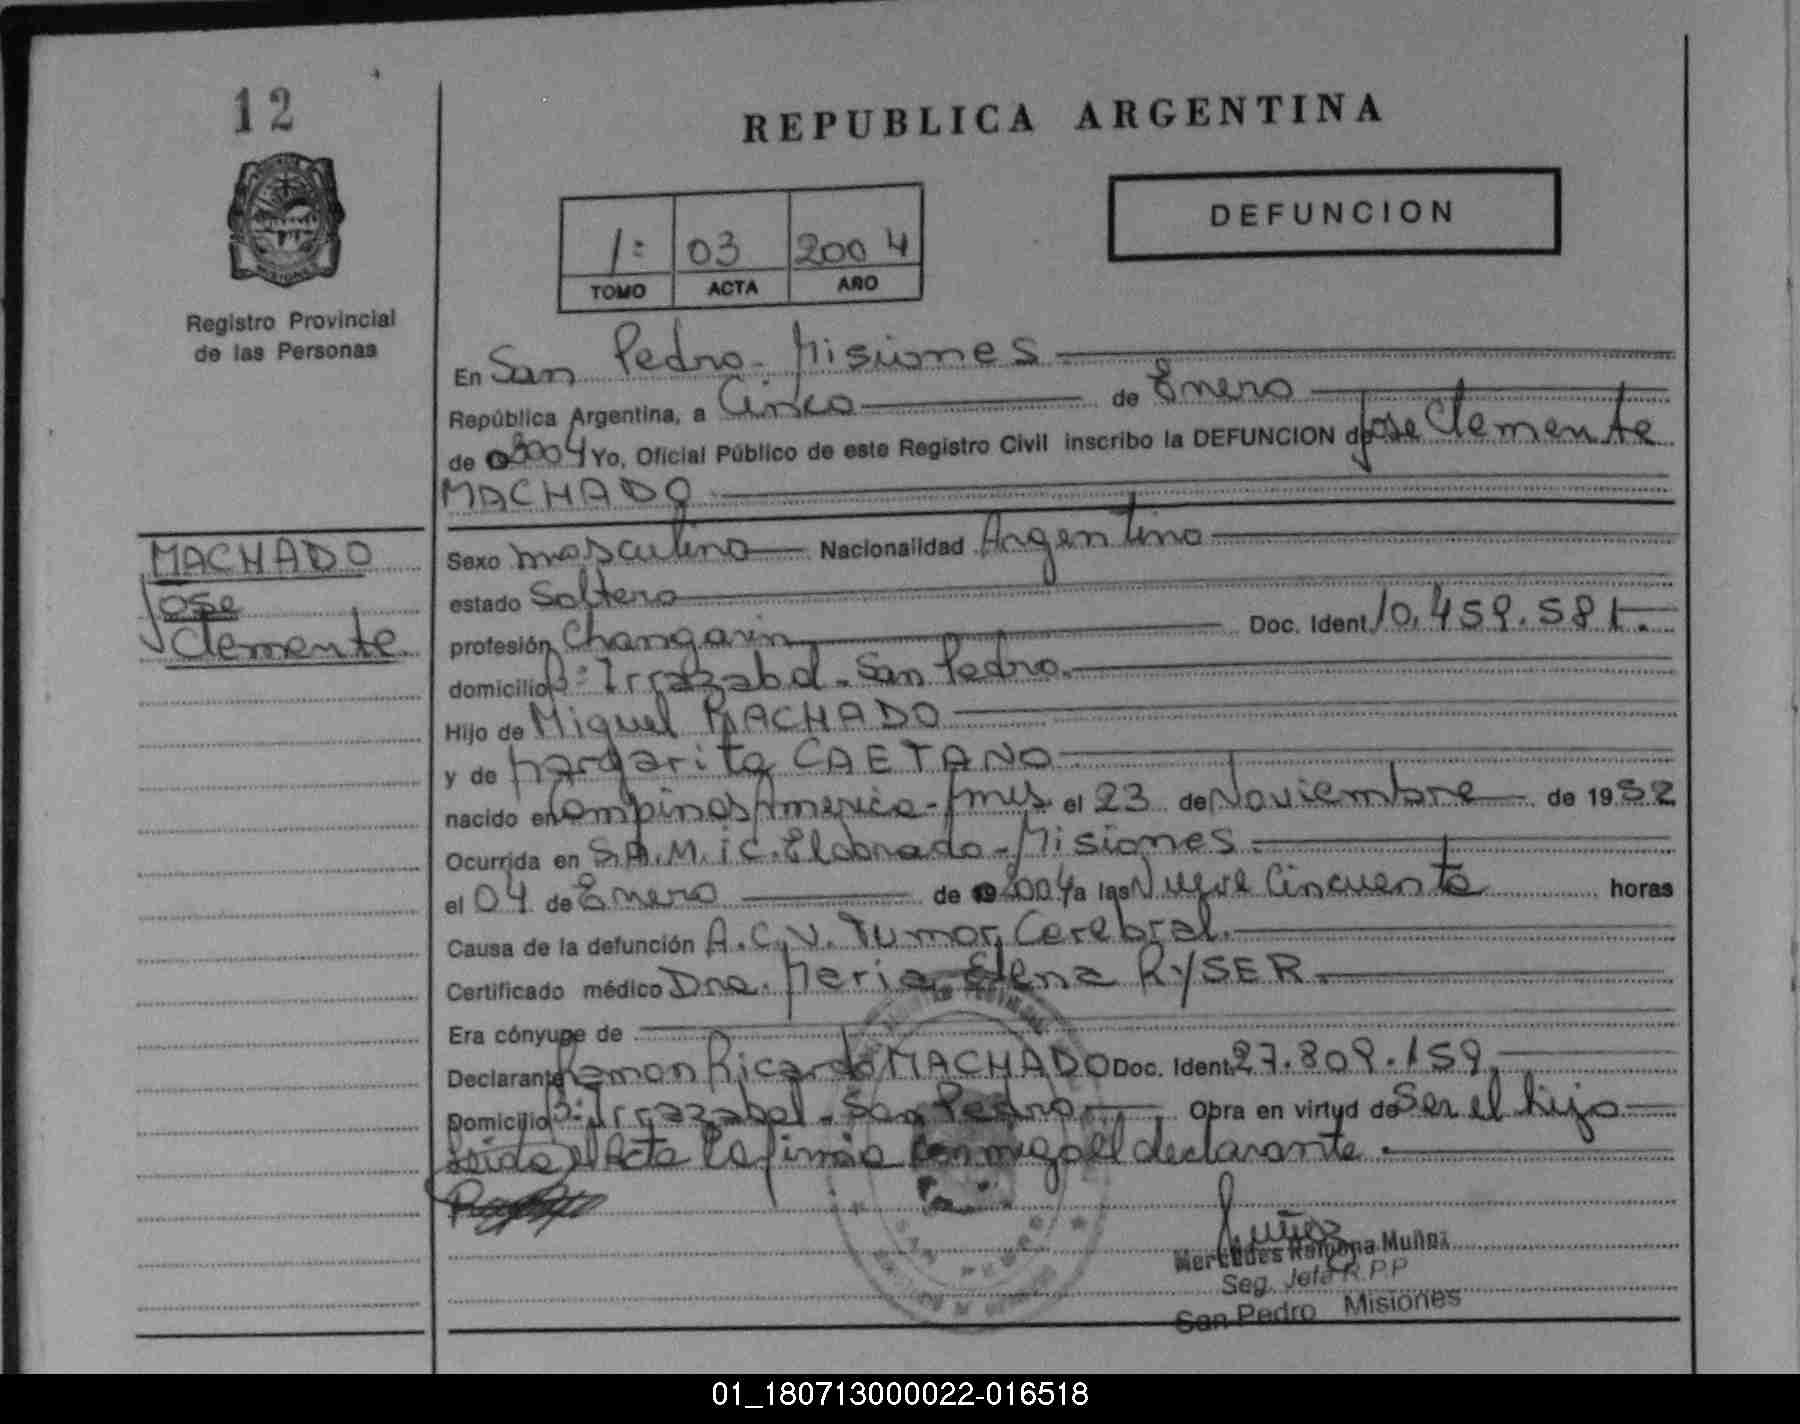 12
REPUBLICA ARGENTINA
DEFUNCION
1: 03 2004
TOMO ACTA AÑO
Registro Provincial
de las Personas
En San Pedro - Misiones
República Argentina, a Cinco de Enero
de 2004 Yo, Oficial Público de este Registro Civil inscribo la DEFUNCION de Jose Clemente
MACHADO
MACHADO
Jose
Clemente
Sexo masculino Nacionalidad Argentino
estado Soltero
profesión Changarin Doc. Ident. 10.459.581.
domicilio B: Irrazabal - San Pedro.
Hijo de Miguel MACHADO
y de Margarita CAETANO
nacido en Campinas America - Mnes el 23 de Noviembre de 1952
Ocurrida en S.A.M.iC. Eldorado - Misiones.
el 04 de Enero de 2004 a las Nueve Cincuenta horas
Causa de la defunción A.C.V. Tumor Cerebral.
Certificado médico Dra. Maria Elena RYSER.
Era cónyuge de
Declarante Ramon Ricardo MACHADO Doc. Ident. 27.809.159.
Domicilio B: Irrazabal - San Pedro. Obra en virtud de Ser el hijo
Leida el Acta la firma conmigo el declarante.
Mercedes Ramona Muñoz
Seg. Jefa R.P.P
San Pedro Misiones
01_180713000022-016518